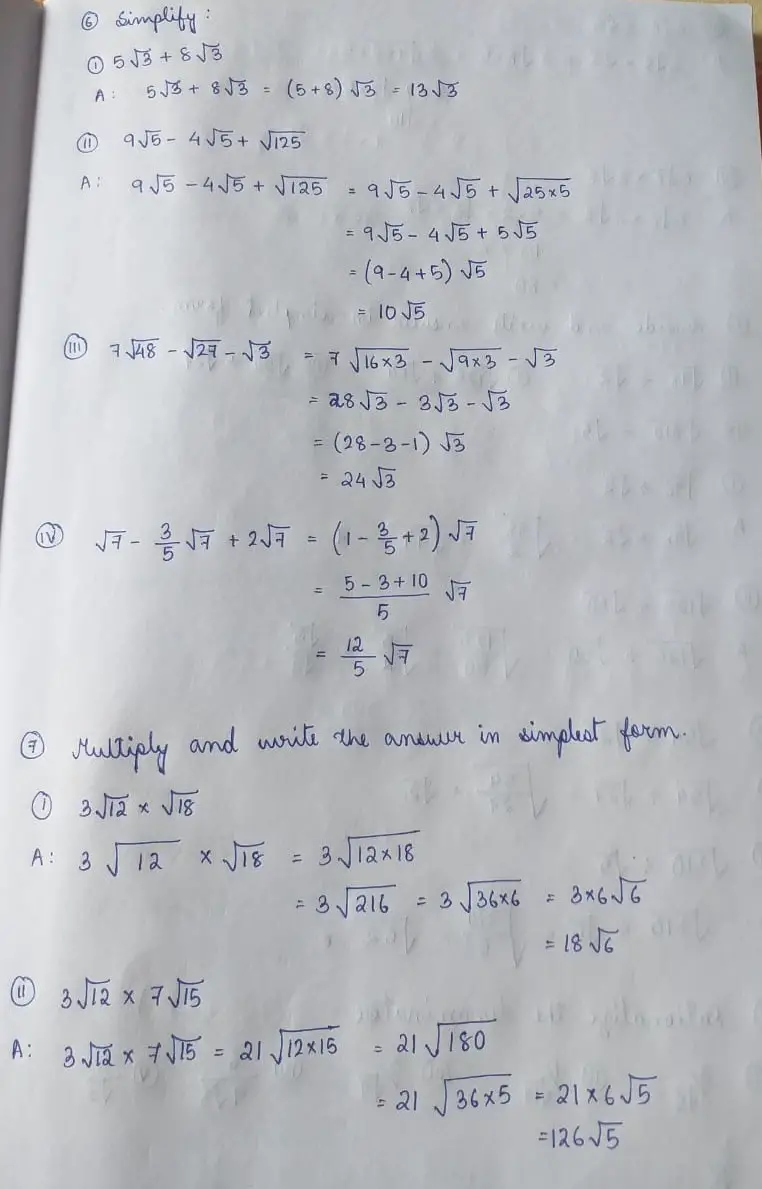 ⑥ Simplify :
① 5√3 + 8√3
A: 5√3 + 8√3 = (5+8) √3 = 13√3
(II) 9√5 - 4√5 + √125
A: 9√5 - 4√5 + √125 = 9√5 - 4√5 + √25×5
= 9√5 - 4√5 + 5√5
= (9-4+5) √5
= 10√5
(III) 7√48 - √27 - √3 = 7 √16×3 - √9×3 - √3
= 28√3 - 3√3 - √3
= (28-3-1) √3
= 24√3
(IV) √7 - 3/5 √7 + 2√7 = (1 - 3/5 + 2) √7
= 5-3+10/5 √7
= 12/5 √7
⑦ Multiply and write the answer in simplest form.
(I) 3√12 × √18
A: 3 √12 × √18 = 3√12×18
= 3√216 = 3 √36×6 = 3×6√6
= 18√6
(II) 3√12 × 7√15
A: 3√12 × 7√15 = 21 √12×15 = 21√180
= 21 √36×5 = 21×6√5
=126√5